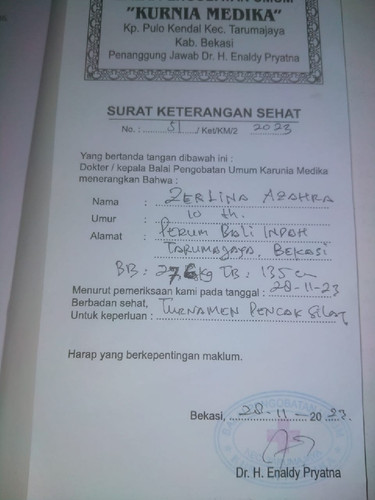 "KURNIA MEDIKA"
Kp. Pulo Kendal Kec. Tarumajaya
Kab. Bekasi
Penanggung Jawab Dr. H. Enaldy Pryatna
SURAT KETERANGAN SEHAT
No. : 51 / Ket/KM/2 2023
Yang bertanda tangan dibawah ini :
Dokter / kepala Balai Pengobatan Umum Karunia Medika
menerangkan Bahwa :
Nama : ZERLINA AZAHRA
Umur : 10 th.
Alamat : PERUM BALI INDAH
TARUMAJAYA, BEKASI
BB : 27,6kg TB : 135 cm
Menurut pemeriksaan kami pada tanggal : 28-11-23
Berbadan sehat,
Untuk keperluan : TURNAMEN PENCAK SILAT
Harap yang berkepentingan maklum.
Bekasi, 28-11-20 23.
Dr. H. Enaldy Pryatna